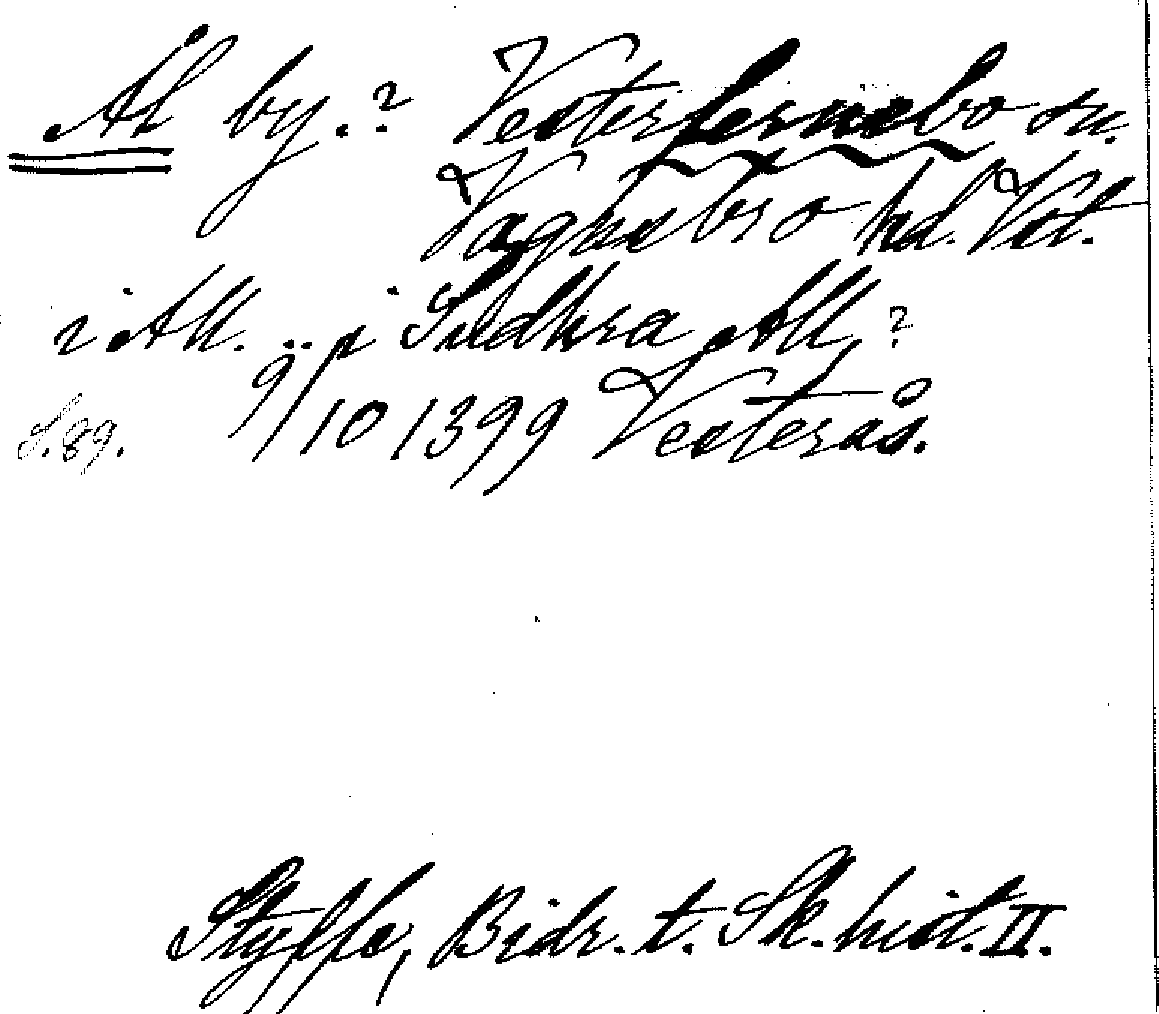 Ål by.? Vesterfernebo sn.
Vagnsbro hd. Vstm.
i Åll. .. i Sudhra Åll ?
S.89. 9/10 1399 Vesterås.
Styffe, Bidr. t. Sk. hist. II.